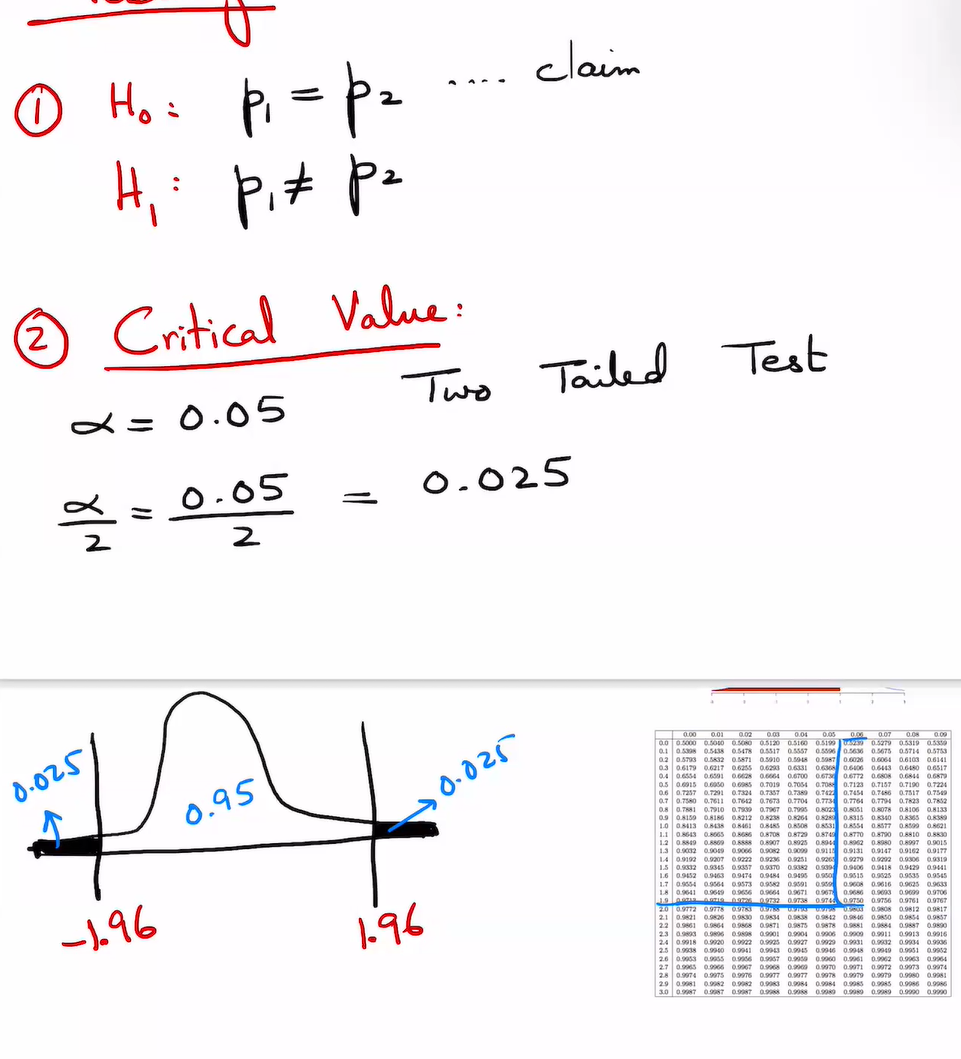 ① H₀: p₁ = p₂ .... claim
H₁: p₁ ≠ p₂
② Critical Value:
Two Tailed Test
α = 0.05
α/2 = 0.05/2 = 0.025
0.025 0.95 0.025
-1.96 1.96
0.00 0.01 0.02 0.03 0.04 0.05 0.06 0.07 0.08 0.09
0.0 0.5000 0.5040 0.5080 0.5120 0.5160 0.5199 0.5239 0.5279 0.5319 0.5359
0.1 0.5398 0.5438 0.5478 0.5517 0.5557 0.5596 0.5636 0.5675 0.5714 0.5753
0.2 0.5793 0.5832 0.5871 0.5910 0.5948 0.5987 0.6026 0.6064 0.6103 0.6141
0.3 0.6179 0.6217 0.6255 0.6293 0.6331 0.6368 0.6406 0.6443 0.6480 0.6517
0.4 0.6554 0.6591 0.6628 0.6664 0.6700 0.6736 0.6772 0.6808 0.6844 0.6879
0.5 0.6915 0.6950 0.6985 0.7019 0.7054 0.7088 0.7123 0.7157 0.7190 0.7224
0.6 0.7257 0.7291 0.7324 0.7357 0.7389 0.7422 0.7454 0.7486 0.7517 0.7549
0.7 0.7580 0.7611 0.7642 0.7673 0.7704 0.7734 0.7764 0.7794 0.7823 0.7852
0.8 0.7881 0.7910 0.7939 0.7967 0.7995 0.8023 0.8051 0.8078 0.8106 0.8133
0.9 0.8159 0.8186 0.8212 0.8238 0.8264 0.8289 0.8315 0.8340 0.8365 0.8389
1.0 0.8413 0.8438 0.8461 0.8485 0.8508 0.8531 0.8554 0.8577 0.8599 0.8621
1.1 0.8643 0.8665 0.8686 0.8708 0.8729 0.8749 0.8770 0.8790 0.8810 0.8830
1.2 0.8849 0.8869 0.8888 0.8907 0.8925 0.8944 0.8962 0.8980 0.8997 0.9015
1.3 0.9032 0.9049 0.9066 0.9082 0.9099 0.9115 0.9131 0.9147 0.9162 0.9177
1.4 0.9192 0.9207 0.9222 0.9236 0.9251 0.9265 0.9279 0.9292 0.9306 0.9319
1.5 0.9332 0.9345 0.9357 0.9370 0.9382 0.9394 0.9406 0.9418 0.9429 0.9441
1.6 0.9452 0.9463 0.9474 0.9484 0.9495 0.9505 0.9515 0.9525 0.9535 0.9545
1.7 0.9554 0.9564 0.9573 0.9582 0.9591 0.9599 0.9608 0.9616 0.9625 0.9633
1.8 0.9641 0.9649 0.9656 0.9664 0.9671 0.9678 0.9686 0.9693 0.9699 0.9706
1.9 0.9713 0.9719 0.9726 0.9732 0.9738 0.9744 0.9750 0.9756 0.9761 0.9767
2.0 0.9772 0.9778 0.9783 0.9788 0.9793 0.9798 0.9803 0.9808 0.9812 0.9817
2.1 0.9821 0.9826 0.9830 0.9834 0.9838 0.9842 0.9846 0.9850 0.9854 0.9857
2.2 0.9861 0.9864 0.9868 0.9871 0.9875 0.9878 0.9881 0.9884 0.9887 0.9890
2.3 0.9893 0.9896 0.9898 0.9901 0.9904 0.9906 0.9909 0.9911 0.9913 0.9916
2.4 0.9918 0.9920 0.9922 0.9925 0.9927 0.9929 0.9931 0.9932 0.9934 0.9936
2.5 0.9938 0.9940 0.9941 0.9943 0.9945 0.9946 0.9948 0.9949 0.9951 0.9952
2.6 0.9953 0.9955 0.9956 0.9957 0.9959 0.9960 0.9961 0.9962 0.9963 0.9964
2.7 0.9965 0.9966 0.9967 0.9968 0.9969 0.9970 0.9971 0.9972 0.9973 0.9974
2.8 0.9974 0.9975 0.9976 0.9977 0.9977 0.9978 0.9979 0.9979 0.9980 0.9981
2.9 0.9981 0.9982 0.9982 0.9983 0.9984 0.9984 0.9985 0.9985 0.9986 0.9986
3.0 0.9987 0.9987 0.9987 0.9988 0.9988 0.9989 0.9989 0.9989 0.9990 0.9990